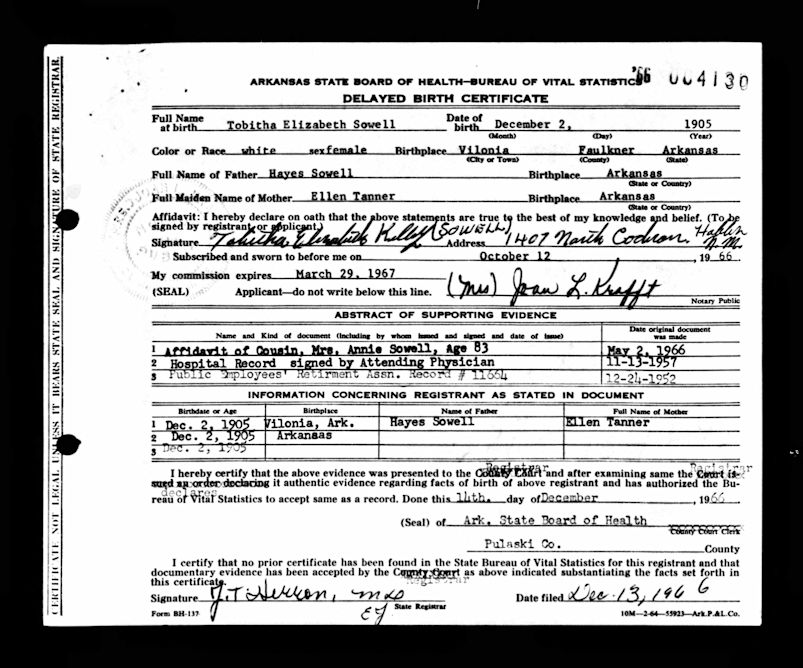 CERTIFICATE NOT LEGAL UNLESS IT BEARS STATE SEAL AND SIGNATURE OF STATE REGISTRAR.
'66 004130
ARKANSAS STATE BOARD OF HEALTH—BUREAU OF VITAL STATISTICS
DELAYED BIRTH CERTIFICATE
Full Name at birth Tobitha Elizabeth Sowell Date of birth December 2, 1905
(Month) (Day) (Year)
Color or Race white sex female Birthplace Vilonia Faulkner Arkansas
(City or Town) (County) (State)
Full Name of Father Hayes Sowell Birthplace Arkansas
(State or Country)
Full Maiden Name of Mother Ellen Tanner Birthplace Arkansas
(State or Country)
Affidavit: I hereby declare on oath that the above statements are true to the best of my knowledge and belief. (To be
signed by registrant or applicant.)
Signature Tobitha Elizabeth Kelley (SOWELL) Address 1407 North Cochran, N.M.
Subscribed and sworn to before me on October 12, 1966
My commission expires March 29, 1967
(SEAL) Applicant—do not write below this line. (Mrs) Joan L. Krafft
Notary Public
ABSTRACT OF SUPPORTING EVIDENCE
Name and Kind of document (including by whom issued and signed and date of issue) Date original document was made
1 Affidavit of Cousin, Mrs. Annie Sowell, Age 83 May 2, 1966
2 Hospital Record signed by Attending Physician 11-13-1957
3 Public Employees' Retirment Assn. Record # 11664 12-24-1952
INFORMATION CONCERNING REGISTRANT AS STATED IN DOCUMENT
Birthdate or Age Birthplace Name of Father Full Name of Mother
1 Dec. 2, 1905 Vilonia, Ark. Hayes Sowell Ellen Tanner
2 Dec. 2, 1905 Arkansas
3 Dec. 2, 1905
I hereby certify that the above evidence was presented to the County Court Registrar and after examining same the Court is- Registrar
sued an order declaring it authentic evidence regarding facts of birth of above registrant and has authorized the Bu-
declares
reau of Vital Statistics to accept same as a record. Done this 14th. day of December, 1966
(Seal) of Ark. State Board of Health
County Court Clerk
Pulaski Co. County
I certify that no prior certificate has been found in the State Bureau of Vital Statistics for this registrant and that
documentary evidence has been accepted by the County Court as above indicated substantiating the facts set forth in
this certificate. Registrar
Signature J.T. Herron, MD Date filed Dec. 13, 1966
EJ State Registrar
Form BH-137 10M—2-64—55923—Ark.P.&L.Co.